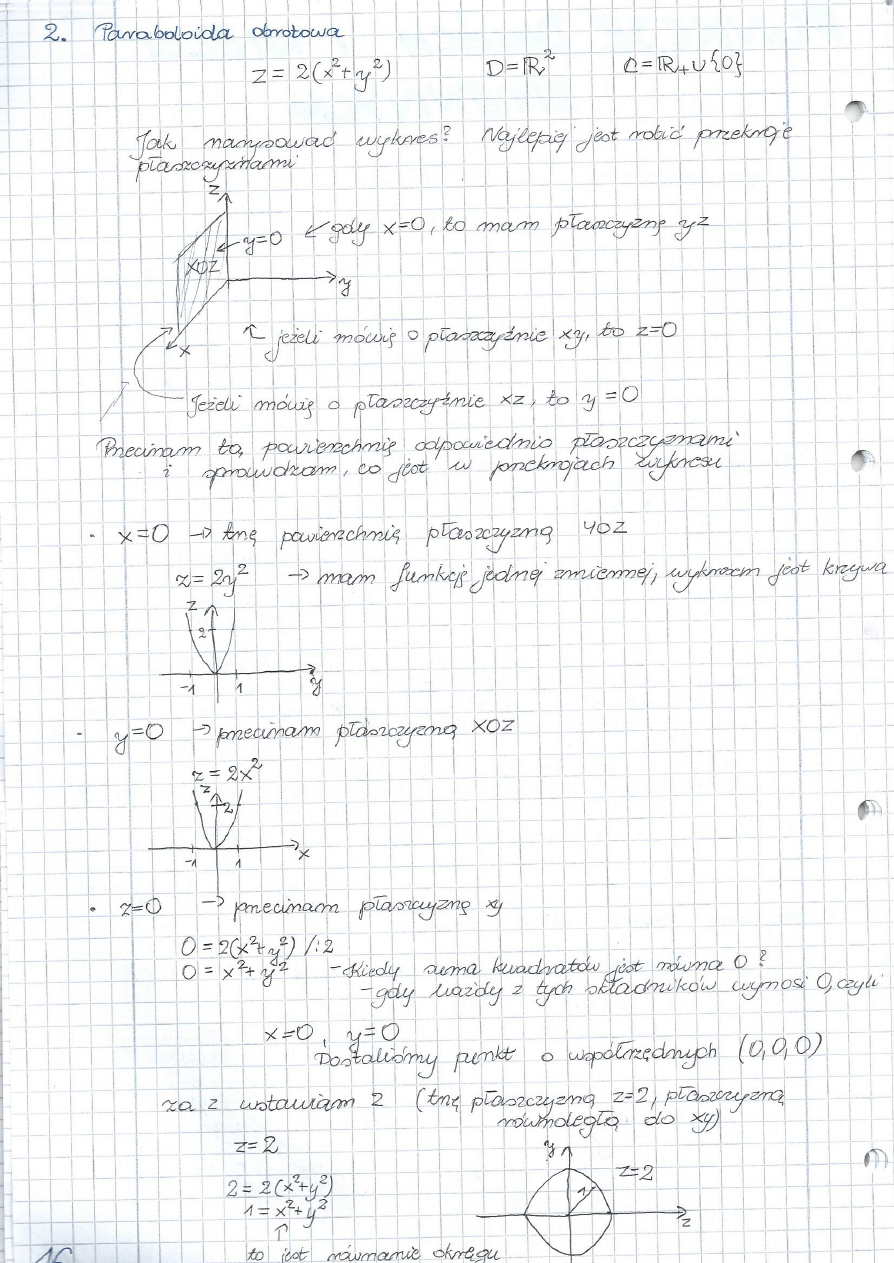 2. Paraboloida obrotowa
z = 2(x²+y²) D=ℝ² C=ℝ₊∪{0}
Jak narysować wykres? Najlepiej jest robić przekroje
płaszczyznami
z
y=0 ↙ gdy x=0, to mam płaszczyznę yz
XOZ
y
↖ jeżeli mówię o płaszczyźnie xy, to z=0
x
Jeżeli mówię o płaszczyźnie xz, to y=0
Przecinam tą powierzchnię odpowiednio płaszczyznami
i sprawdzam, co jest w przekrojach wykresu
· x=0 → tnę powierzchnię płaszczyzną YOZ
z=2y² → mam funkcję jednej zmiennej, wykresem jest krzywa
z
2
-1 1 y
- y=0 → przecinam płaszczyzną XOZ
z=2x²
z
2
-1 1 x
• z=0 → przecinam płaszczyznę xy
0=2(x²+y²) /:2
0=x²+y² - Kiedy suma kwadratów jest równa 0?
- gdy każdy z tych składników wynosi 0, czyli
x=0, y=0
Dostaliśmy punkt o współrzędnych (0,0,0)
za z wstawiam 2 (tnę płaszczyzną z=2, płaszczyzną
równoległą do xy)
z=2
y
z=2
1
2=2(x²+y²)
1=x²+y²
z
↑
to jest równanie okręgu
16